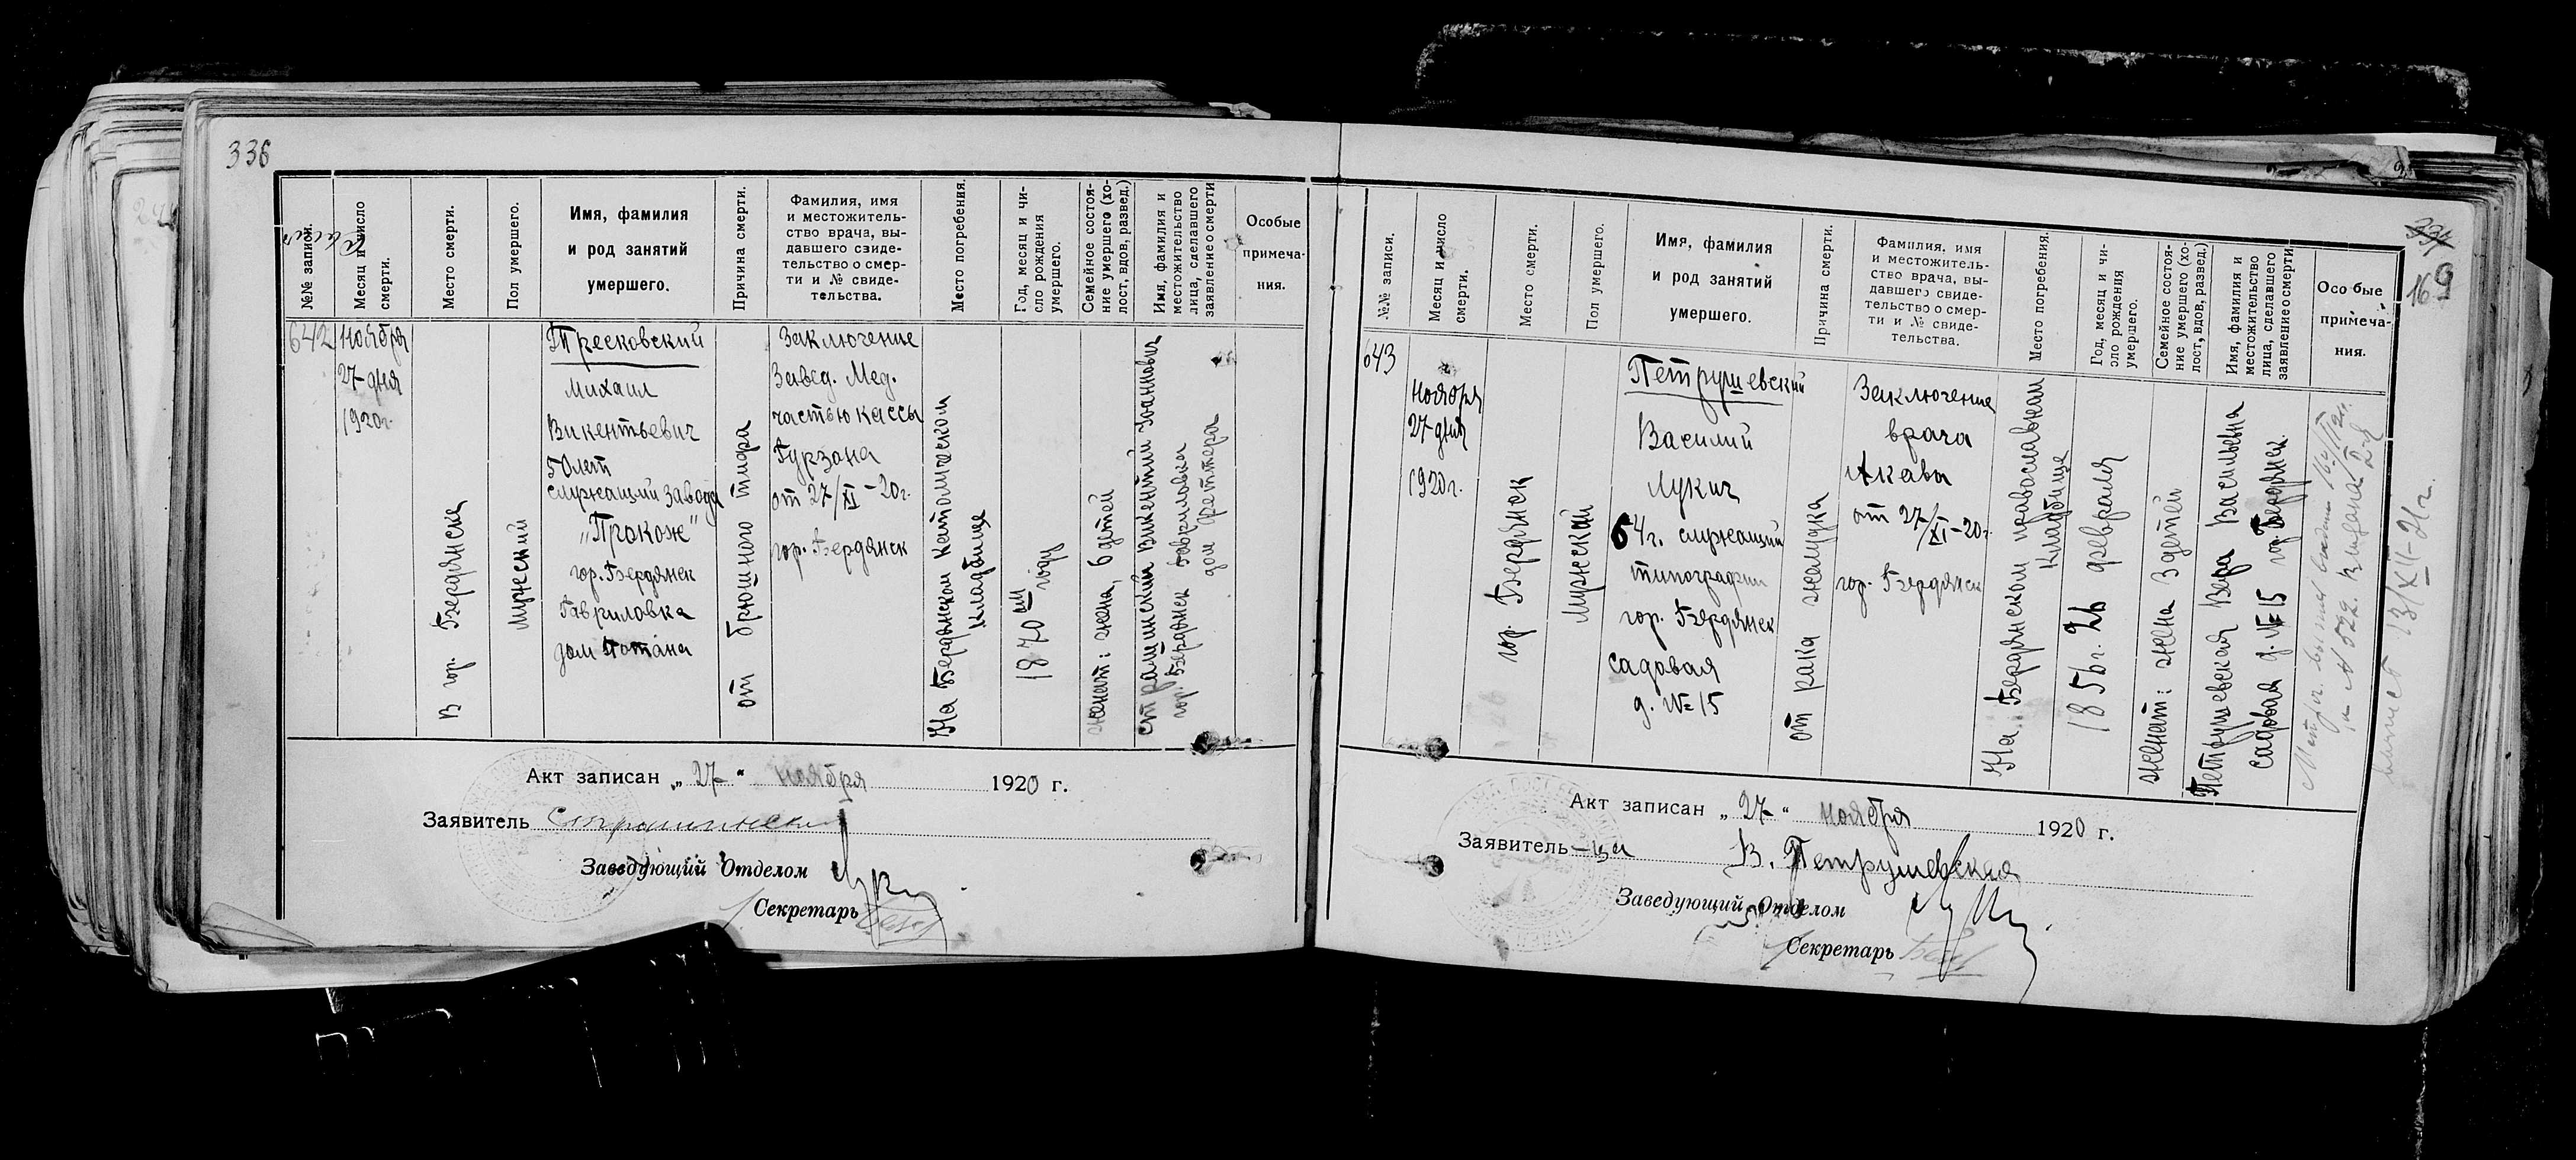 336
№№ записи.
Месяц и число
смерти.
Место смерти.
Пол умершего.
Имя, фамилия
и род занятий
умершего.
Причина смерти.
Фамилия, имя
и местожитель-
ство врача, вы-
давшего свиде-
тельство о смер-
ти и № свиде-
тельства.
Место погребения.
Год, месяц и чи-
сло рождения
умершего.
Семейное состоя-
ние умершего (хо-
лост, вдов, развед.)
Имя, фамилия и
местожительство
лица, сделавшего
заявление о смерти
Особые
примеча-
ния.
642
Ноября
27 дня
1920г.
В гор. Бердянске
Мужеский
Тресковский
Михаил
Викентьевич
50 лет
служащий завода
„Прокож"
гор. Бердянск
Гавриловка
дом
от брюшного тифа
Заключение
Завед. Мед.
частью кассы
Гурзона
от 27/XI-20г.
гор. Бердянск
На Бердянском Католическом
кладбище
1870 году
женат: жена, 6 детей
Страшинский Викентий Иванович
гор. Бердянск Гавриловка
дом Фреттера
Акт записан „ 27 " ноября 1920 г.
Заявитель Страшинский
Заведующий Отделом
Секретарь
334
169
№№ записи.
Месяц и число
смерти.
Место смерти.
Пол умершего.
Имя, фамилия
и род занятий
умершего.
Причина смерти.
Фамилия, имя
и местожитель-
ство врача, вы-
давшего свиде-
тельство о смер-
ти и № свиде-
тельства.
Место погребения.
Год, месяц и чи-
сло рождения
умершего.
Семейное состоя-
ние умершего (хо-
лост, вдов, развед.)
Имя, фамилия и
местожительство
лица, сделавшего
заявление о смерти
Особые
примеча-
ния.
643
Ноября
27 дня
1920г.
гор. Бердянск
Мужеский
Петрушевский
Василий
Лукич
64г. служащий
типографии
гор. Бердянск
садовая
д. №15
от рака желудка
Заключение
врача
Акава
от 27/XI-20г
гор. Бердянск
На Бердянском православном
кладбище
1856г. 26 февраля
женат: жена 3 детей
Петрушевская Вера Васильевна
садовая д. №15 гор. Бердянск
13/XII-21г.
Акт записан „ 27 " ноября 1920 г.
Заявитель-ца В. Петрушевская
Заведующий Отделом
Секретарь